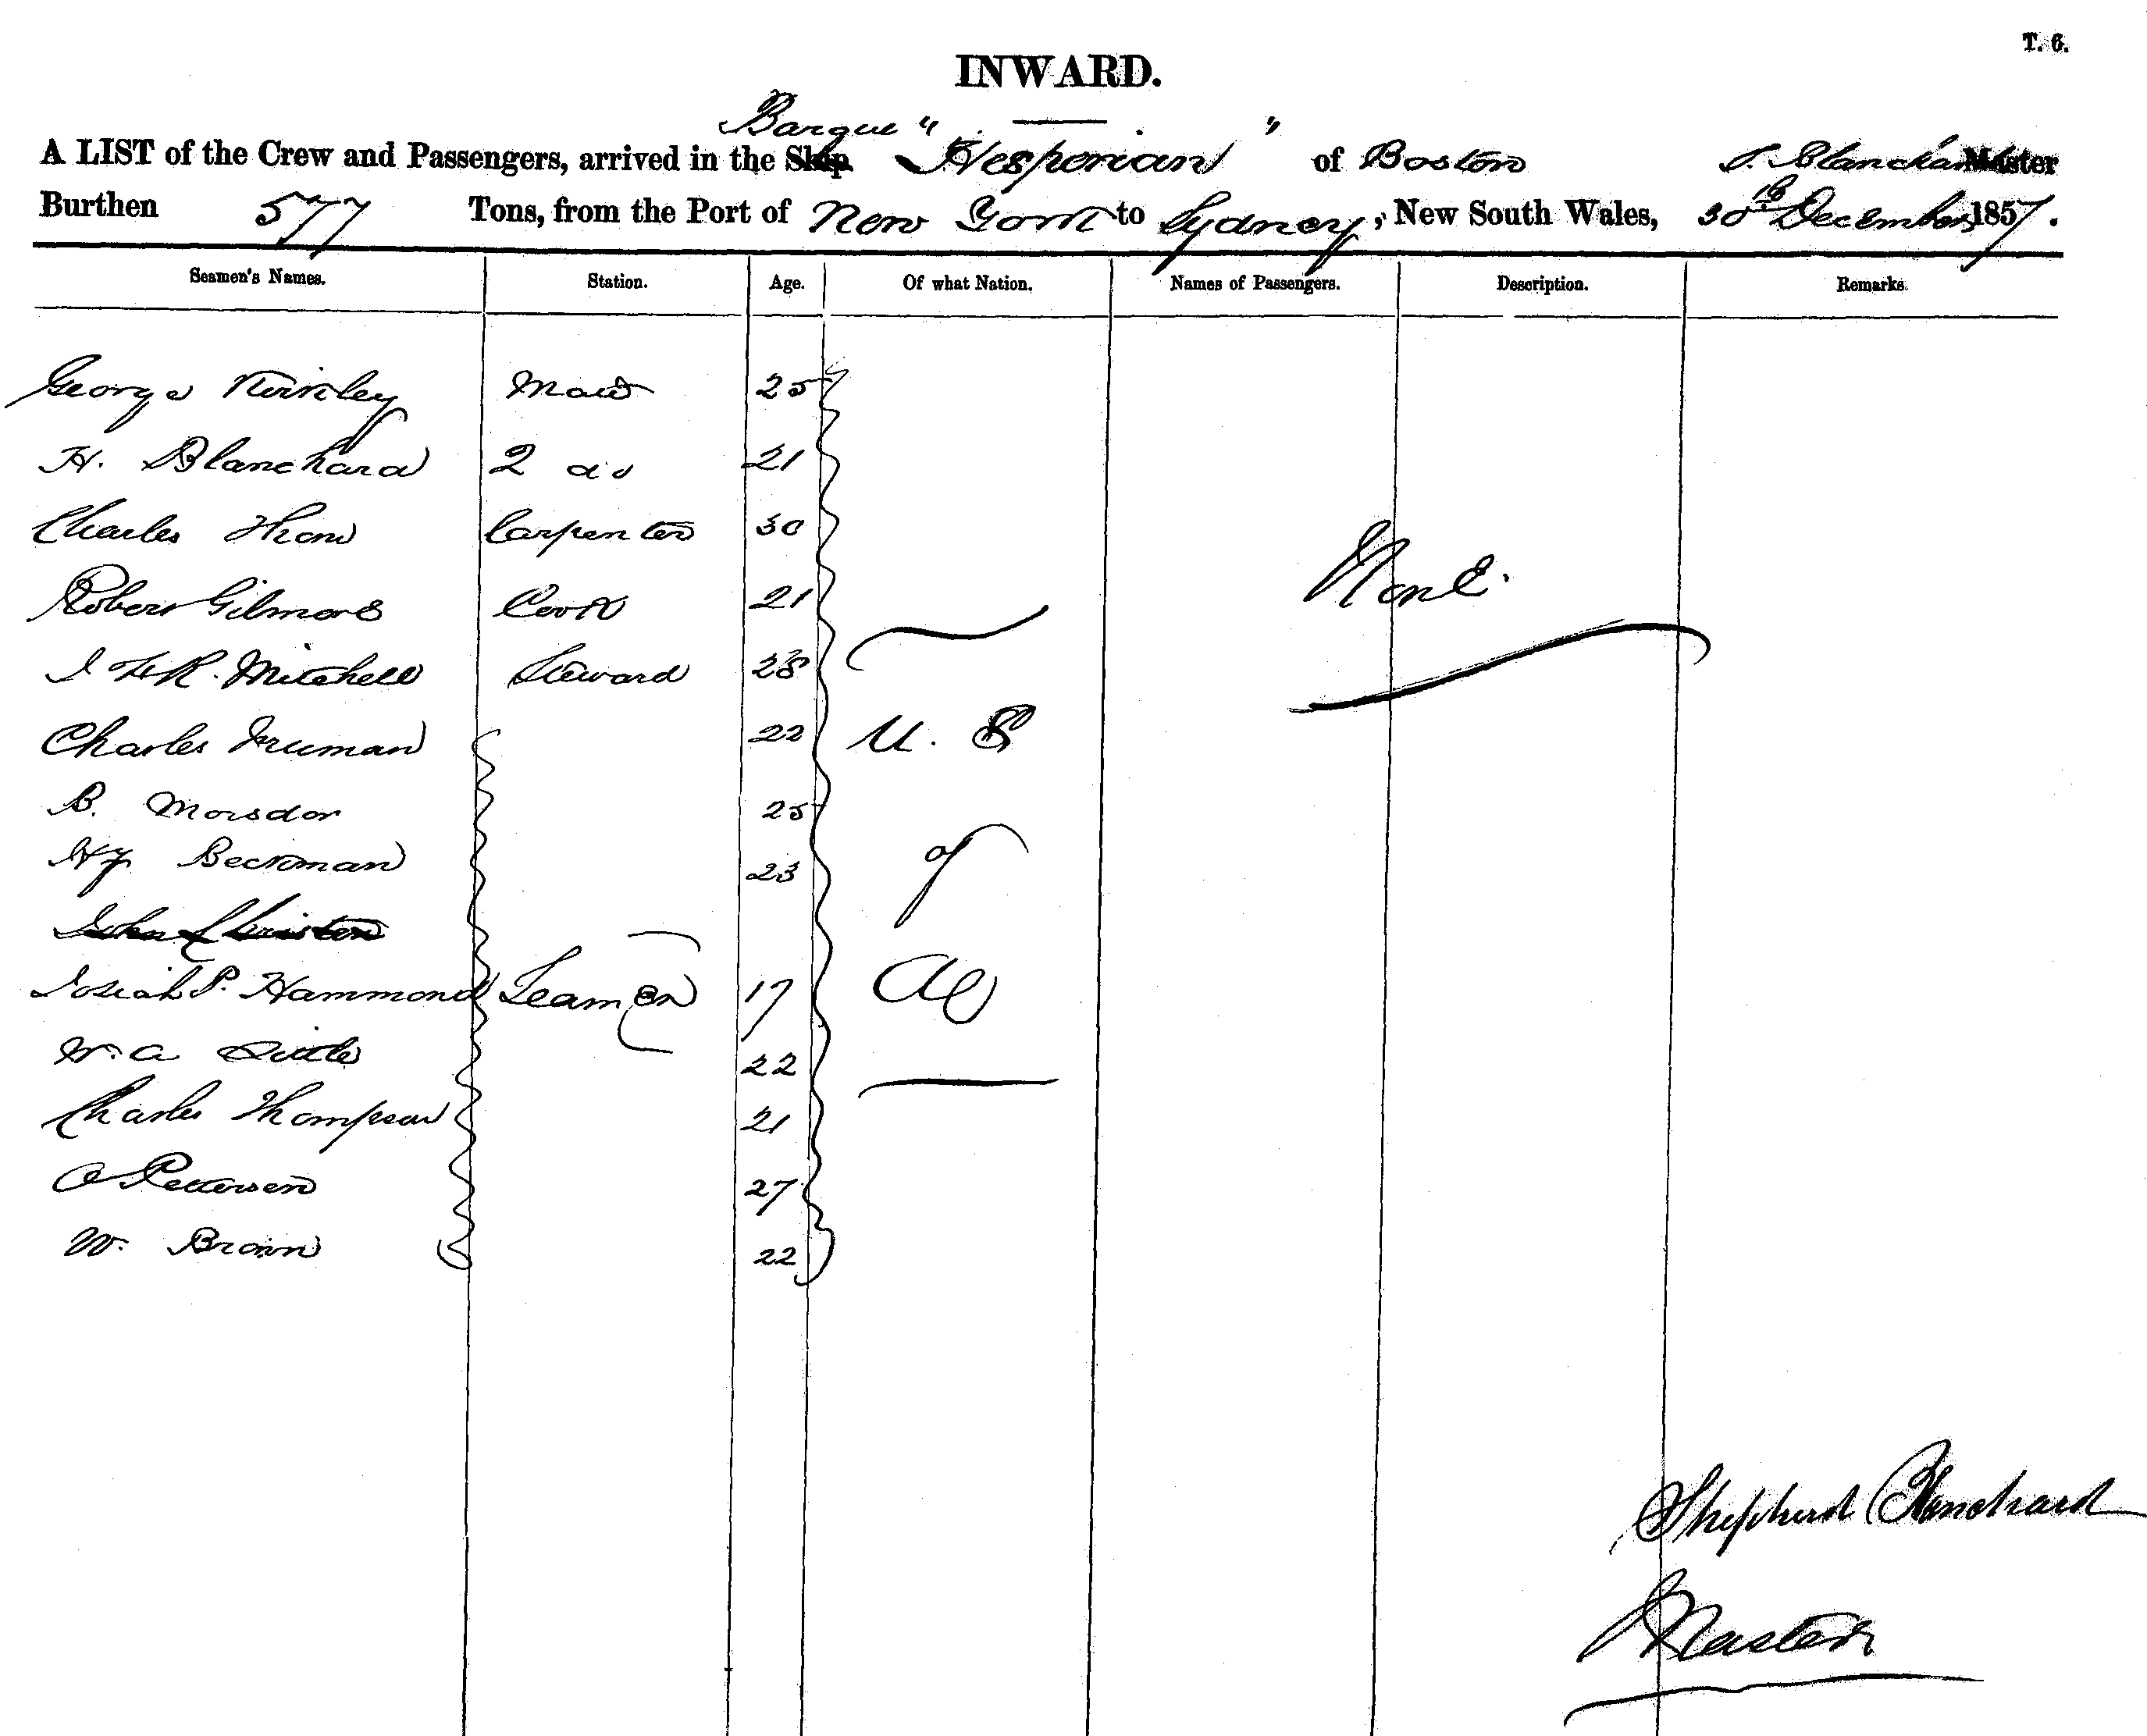 T. 6.
INWARD.
Barque " "
A LIST of the Crew and Passengers, arrived in the Ship Hesperian of Boston S. Blanchard Master
Burthen 577 Tons, from the Port of New York to Sydney, New South Wales, 30th December 1857.
Seamen's Names. Station. Age. Of what Nation. Names of Passengers. Description. Remarks.
George Mate 25
H. Blanchard 2 do 21
Charles Carpenter 30
None.
Robert Gilmore Cook 21
Mitchell Steward 28
Charles Truman 22 U. S
B. 25
Hy Beckman 23 of
John
Josiah P. Hammond Seamen 17 A
W. A Little 22
Charles Thompson 21
O Petersen 27
W. Brown 22
Shepherd Blanchard
Master